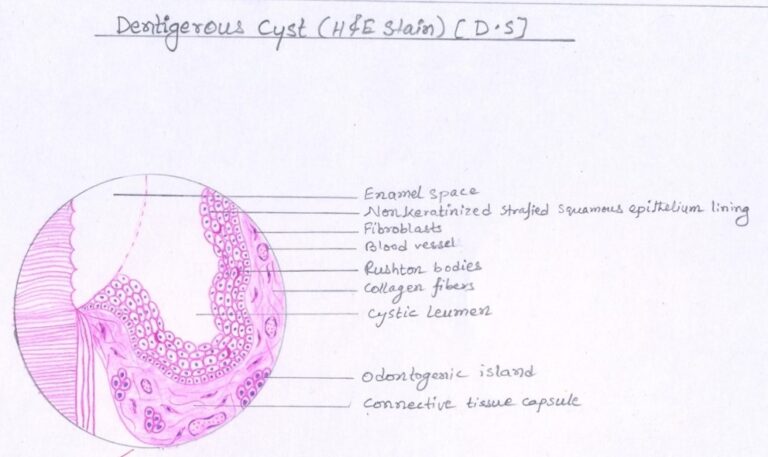 Dentigerous Cyst (H&E Stain) [D.S]
Enamel space
Nonkeratinized strafied squamous epithelium lining
Fibroblasts
Blood vessel
Rushton bodies
Collagen fibers
Cystic Leumen
Odontogenic island
Connective tissue capsule